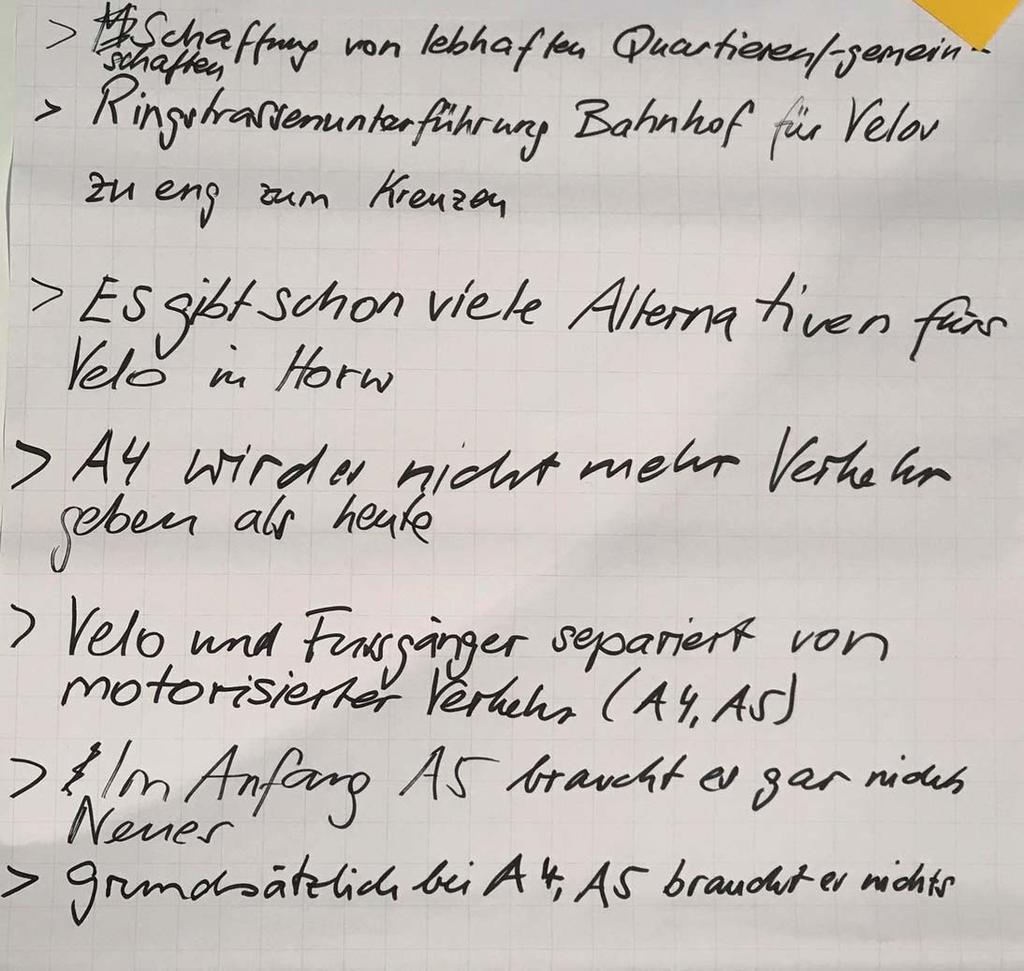 > Schaffung von lebhaften Quartieren/-gemein-
schaften
> Ringstrassenunterführung Bahnhof für Velos
zu eng zum Kreuzen
> Es gibt schon viele Alternativen fürs
Velo in Horw
> A4 wird es nicht mehr Verkehr
geben als heute
> Velo und Fussgänger separiert von
motorisierter Verkehr (A4, A5)
> Im Anfang A5 braucht es gar nichts
Neues
> grundsätzlich bei A4, A5 braucht es nichts